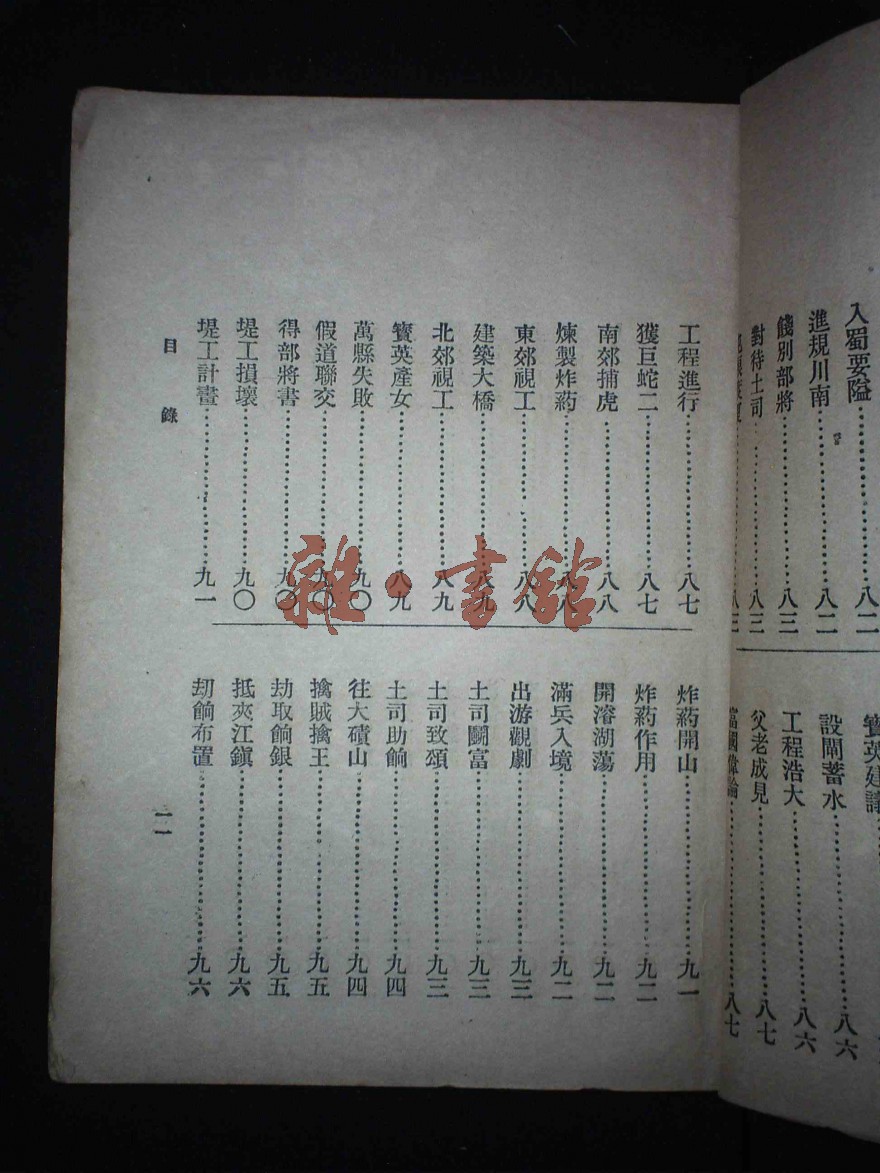 入蜀要隘……八二
進規川南……八二
餞別部將……八三
對待土司……八三
八三
寶英建議
設閘蓄水……八六
工程浩大……八六
父老成見……八七
富國偉論……八七
工程進行……八七
獲巨蛇二……八七
南郊捕虎……八八
煉製炸葯……八八
東郊視工……八八
建築大橋……八九
北郊視工……八九
寶英產女……八九
萬縣失敗……九〇
假道聯交……九〇
得部將書……九〇
堤工損壞……九〇
堤工計畫……九一
炸葯開山……九一
炸葯作用……九二
開濬湖蕩……九二
滿兵入境……九二
出游觀劇……九三
土司鬪富……九三
土司致頌……九三
土司助餉……九四
往大磧山……九四
擒賊擒王……九五
劫取餉銀……九五
抵夾江鎮……九六
刧餉布置……九六
目錄
一一
雜·書館